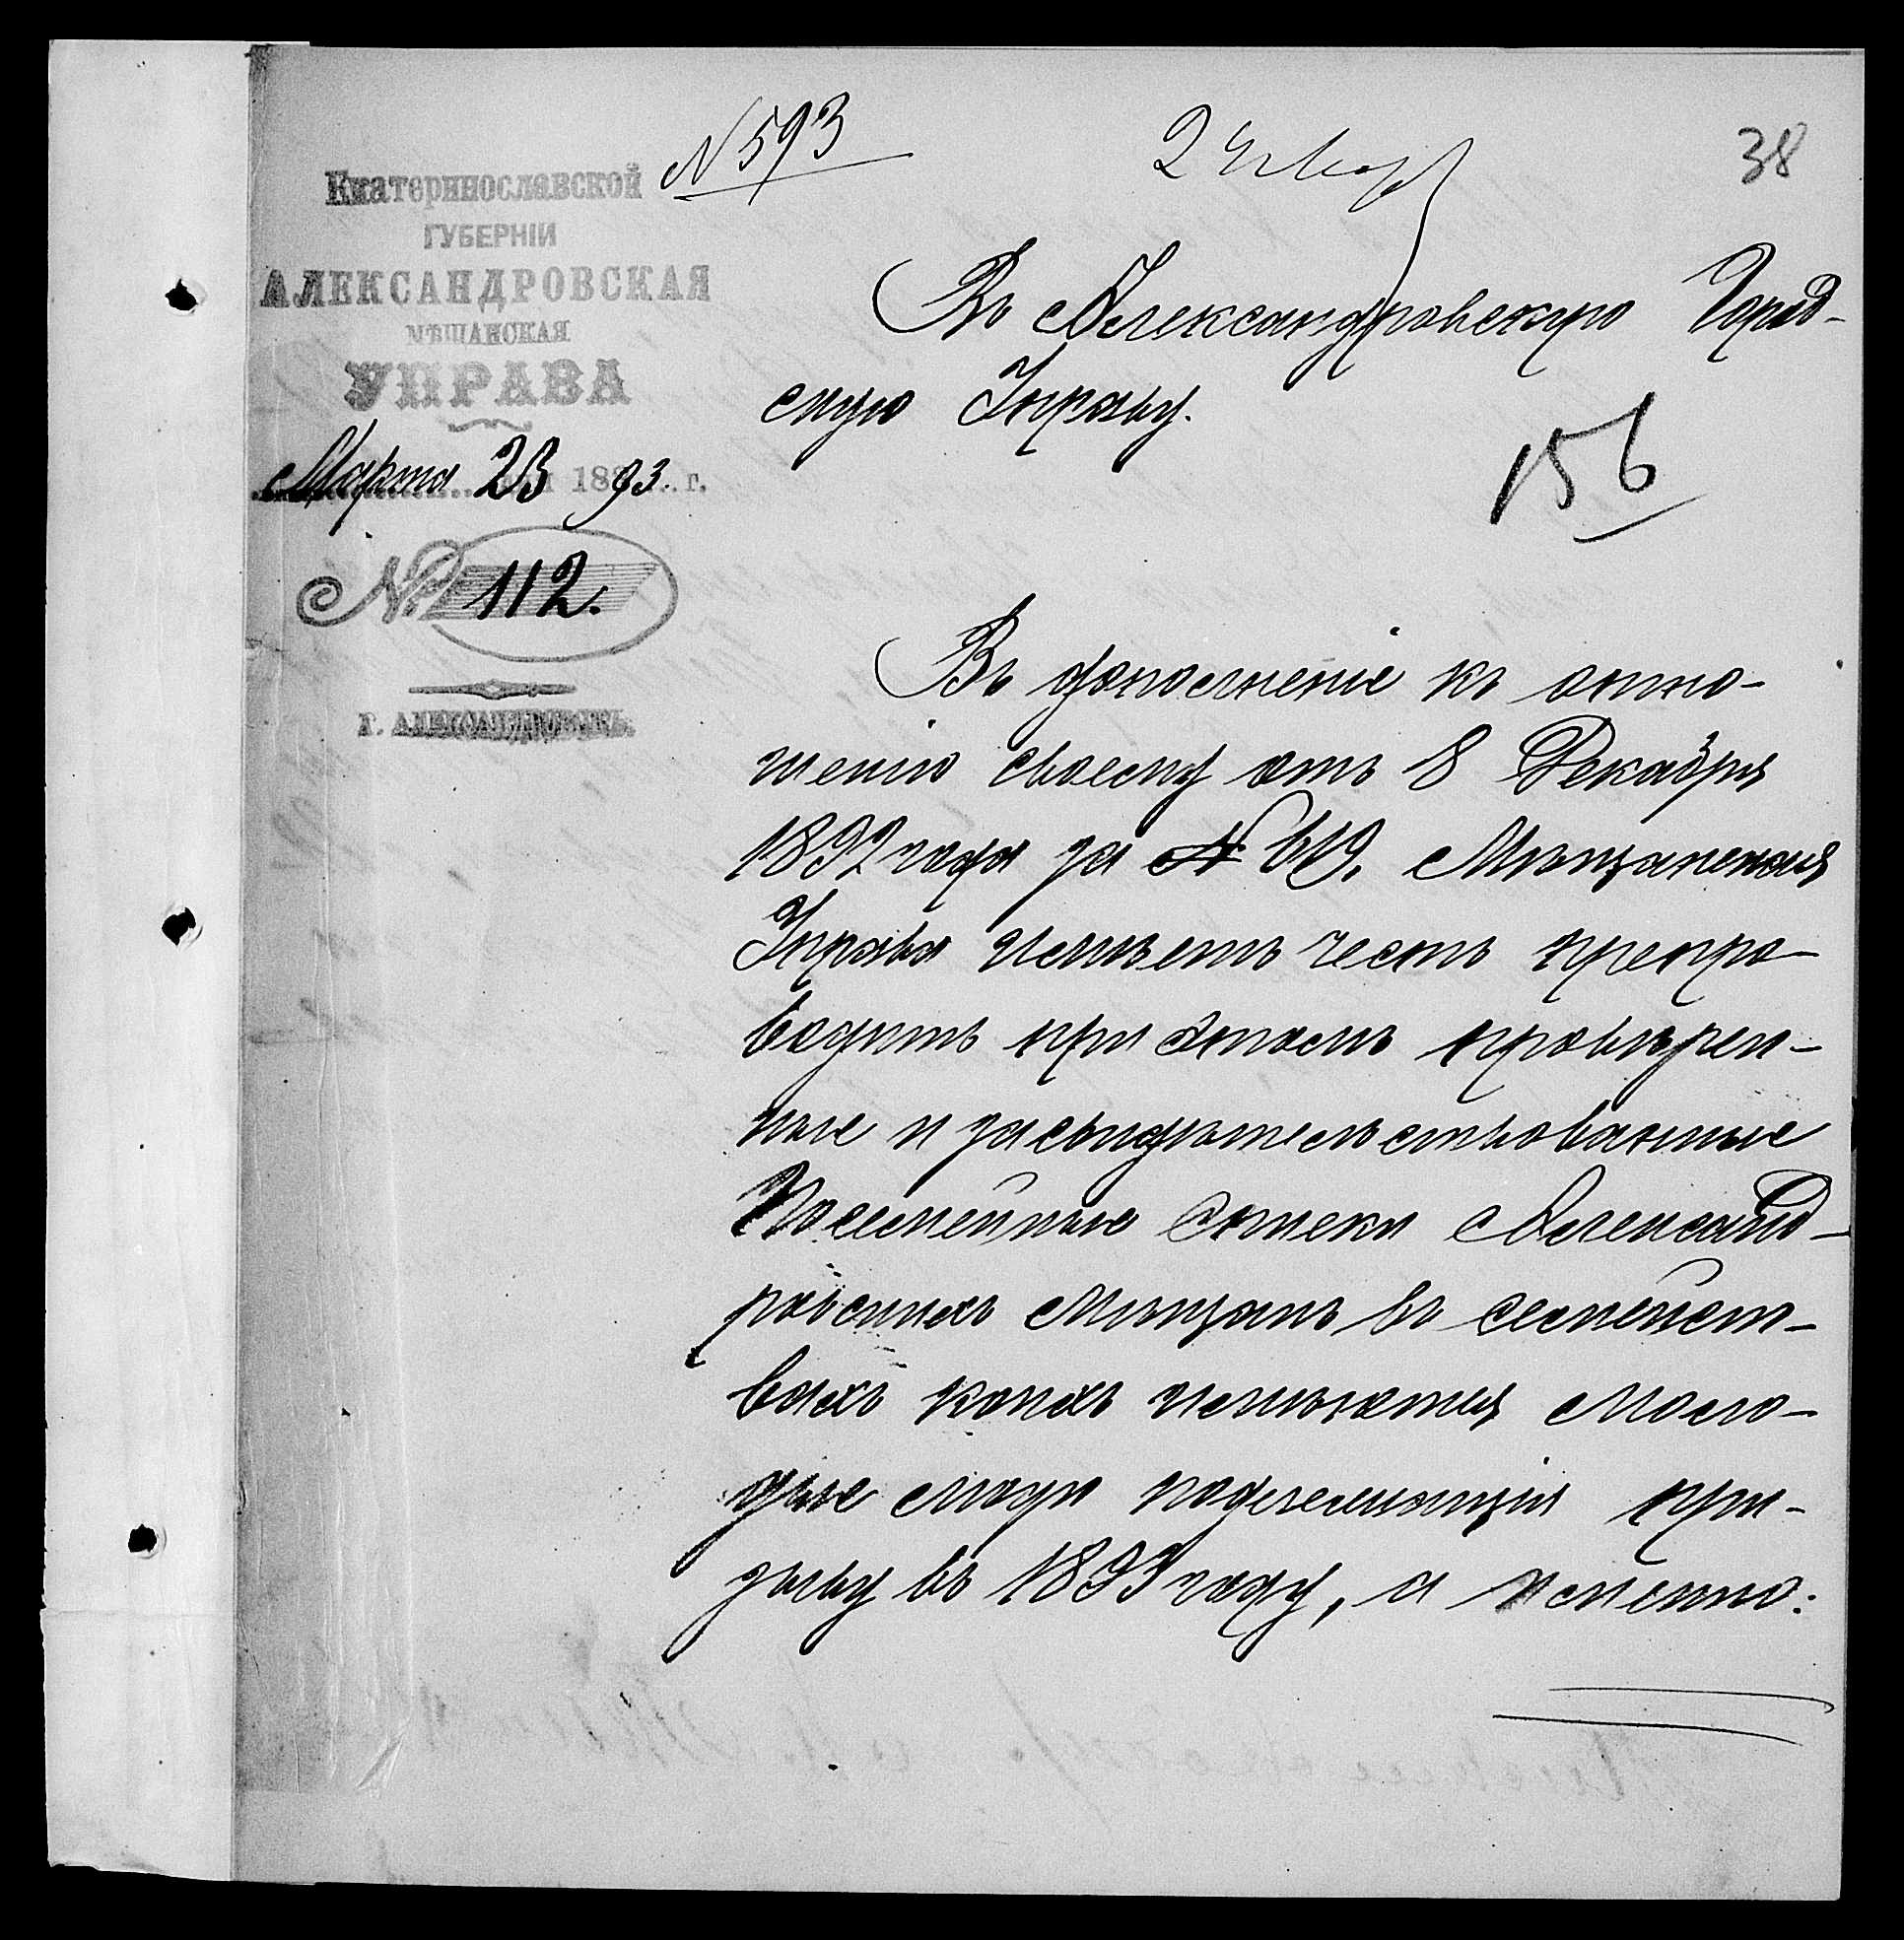 № 593
38
Екатеринославской
ГУБЕРНІИ
АЛЕКСАНДРОВСКАЯ
МѢЩАНСКАЯ
УПРАВА
Марта 23 дня 1893. г.
№ 112.
Г. АЛЕКСАНДРОВСКЪ.
Въ Александровскую Город-
скую Управу.
156
Въ дополненіе къ отно-
шенію своему отъ 8 Декабря
1892 года за № 619, Мѣщанская
Управа имѣетъ честь препро-
водить при этомъ провѣрен-
ные и засвидѣтельствованные
Посемейные списки Александ-
ровскихъ мѣщанъ въ семейст-
вахъ коихъ имѣются моло-
дые люди подлежащія при-
зыву въ 1893 году, а именно: